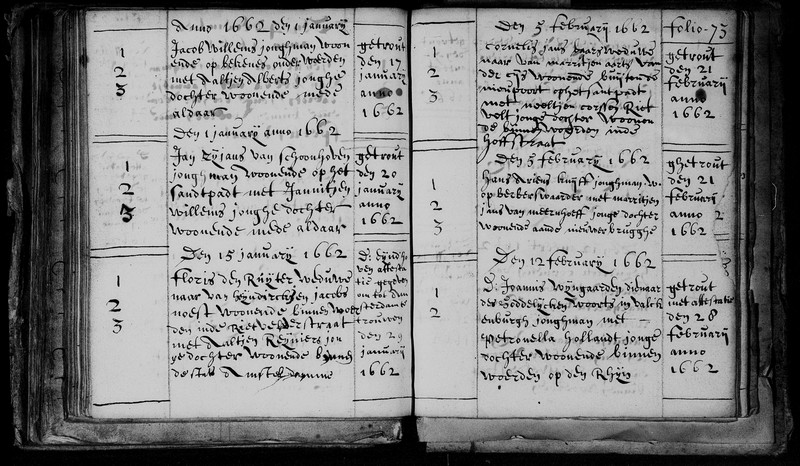 Anno 1662 den 1 januarij
1
2
3
Jacob Willems jonghman woon
ende op bekenes onder woerden
met Aaltjen Alberts jonghe
dochter woonende mede
aldaar
getrout
den 17
januarij
anno
1662
Den 1 januarij anno 1662
1
2
3
Jan van schoonhoven
jonghman woonende op het
santpadt met Jannitjen
willems jonghe dochter
woonende mede aldaar
getrout
den 20
januarij
anno
1662
Den 15 januarij 1662
1
2
3
floris den Ruijter weduwe
naar van Hendrickjen jacobs
noest woonende binnen woer
den inde Rietvelderstraat
met Aaltjen Reijniers jon
ge dochter woonende binnen
de stat Amsterdamme
D: eijndho
ven attesta
tie gegeven
om tot Am
sterdam te
trouwen
den 29
januarij
1662
Den 5 februarij 1662
folio-73
1
2
3
cornelis jans weduwe
naar van marritjen aerts van
der woonende buijtende
nieupoort ophet santpadt
met neeltjen corssen Riet
velt jonge dochter woonen
de binne woerden inde
hoffstraat
getrout
den 21
februarij
anno
1662
Den 5 februarij 1662
1
2
3
Hans Ariens knijff jonghman w
op berkerswaarder met marritjen
jans van meernhoeff jonge dochter
woonende aande nieuwerbrugghe
ghetrout
den 21
februarij
anno 2
1662
Den 12 februarij 1662
1
2
D: Joannis Wijngaarden dienaar
des Goddelijcken woorts in valck
enburgh jonghman met
Petronella Hollandt jonge
dochter woonende binnen
woerden op den Rhijn
getrout
met attestatie
den 28
februarij
anno
1662